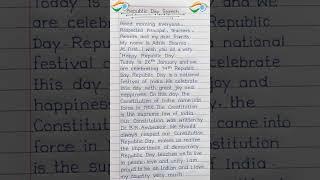 Republic Day Speech
Good morning Everyone.
Respected Principal, Teachers,
Parents and my dear friends.
My name is
At First, I wish you a very
"Happy Republic Day".
Today is 26th January and we
are celebrating 74th Republic
Day. Republic Day is a national
festival of India. We celebrate
this day with great joy and
happiness. On this day, the
Constitution of India came into
force in 1950. The Constitution
is the supreme law of India.
Our Constitution was written by
Dr. B.R. Ambedkar. We should
always respect our Constitution.
Republic Day makes us realise
the importance of democracy.
Republic Day teaches us to live
in peace, love and unity. I am
proud to be an Indian and I love
my country very much.